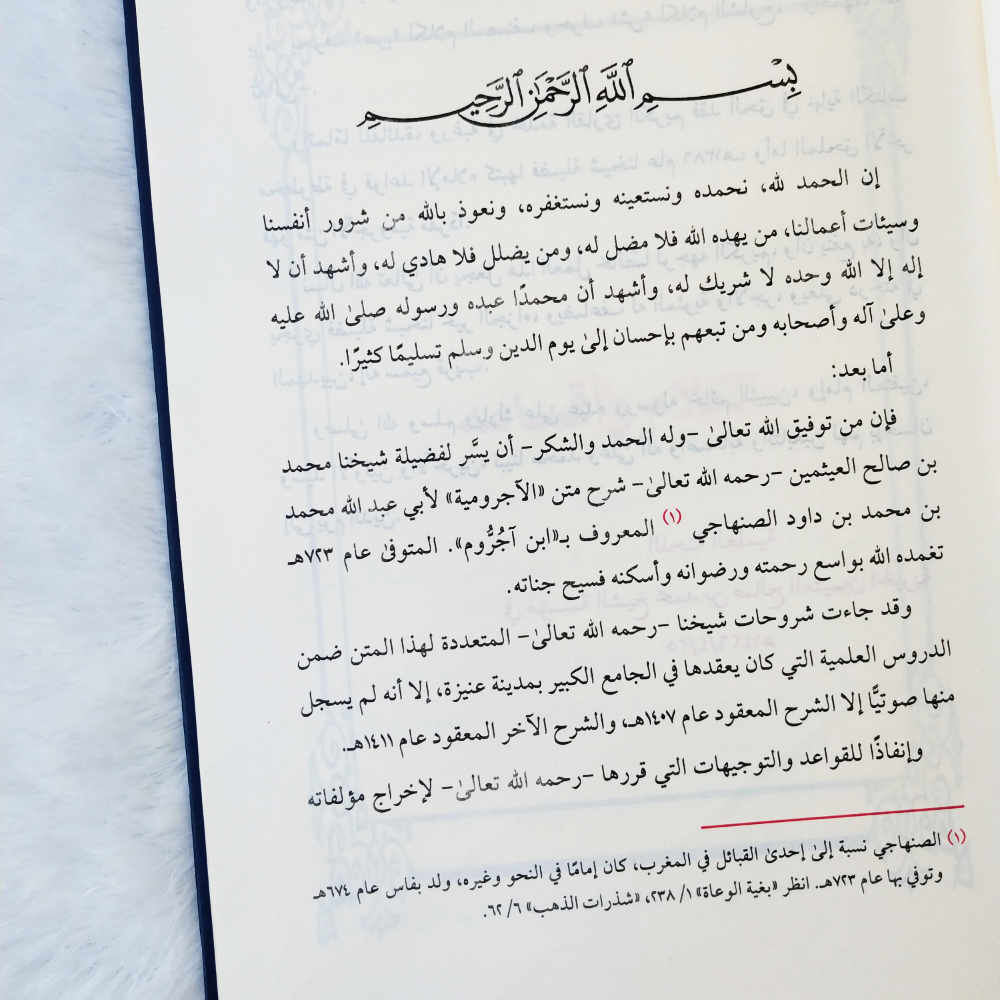 بِسْمِ ٱللَّهِ ٱلرَّحْمَٰنِ ٱلرَّحِيمِ
إن الحمد لله، نحمده ونستعينه ونستغفره، ونعوذ بالله من شرور أنفسنا
وسيئات أعمالنا، من يهده الله فلا مضل له، ومن يضلل فلا هادي له، وأشهد أن لا
إله إلا الله وحده لا شريك له، وأشهد أن محمدًا عبده ورسوله صلىٰ الله عليه
وعلىٰ آله وأصحابه ومن تبعهم بإحسان إلىٰ يوم الدين وسلم تسليمًا كثيرًا.
أما بعد:
فإن من توفيق الله تعالىٰ -وله الحمد والشكر- أن يسَّر لفضيلة شيخنا محمد
بن صالح العيثمين -رحمه الله تعالىٰ- شرح متن «الآجرومية» لأبي عبد الله محمد
بن محمد بن داود الصنهاجي (١) المعروف بـ«ابن آجُرُّوم». المتوفىٰ عام ٧٢٣هـ
تغمده الله بواسع رحمته ورضوانه وأسكنه فسيح جناته.
وقد جاءت شروحات شيخنا -رحمه الله تعالىٰ- المتعددة لهذا المتن ضمن
الدروس العلمية التي كان يعقدها في الجامع الكبير بمدينة عنيزة، إلا أنه لم يسجل
منها صوتيًّا إلا الشرح المعقود عام ١٤٠٧هـ، والشرح الآخر المعقود عام ١٤١١هـ.
وإنفاذًا للقواعد والتوجيهات التي قررها -رحمه الله تعالىٰ- لإخراج مؤلفاته
(١) الصنهاجي نسبة إلىٰ إحدىٰ القبائل في المغرب، كان إمامًا في النحو وغيره، ولد بفاس عام ٦٧٤هـ
وتوفي بها عام ٧٢٣هـ. انظر «بغية الوعاة» ١/ ٢٣٨، «شذرات الذهب» ٦/ ٦٢.